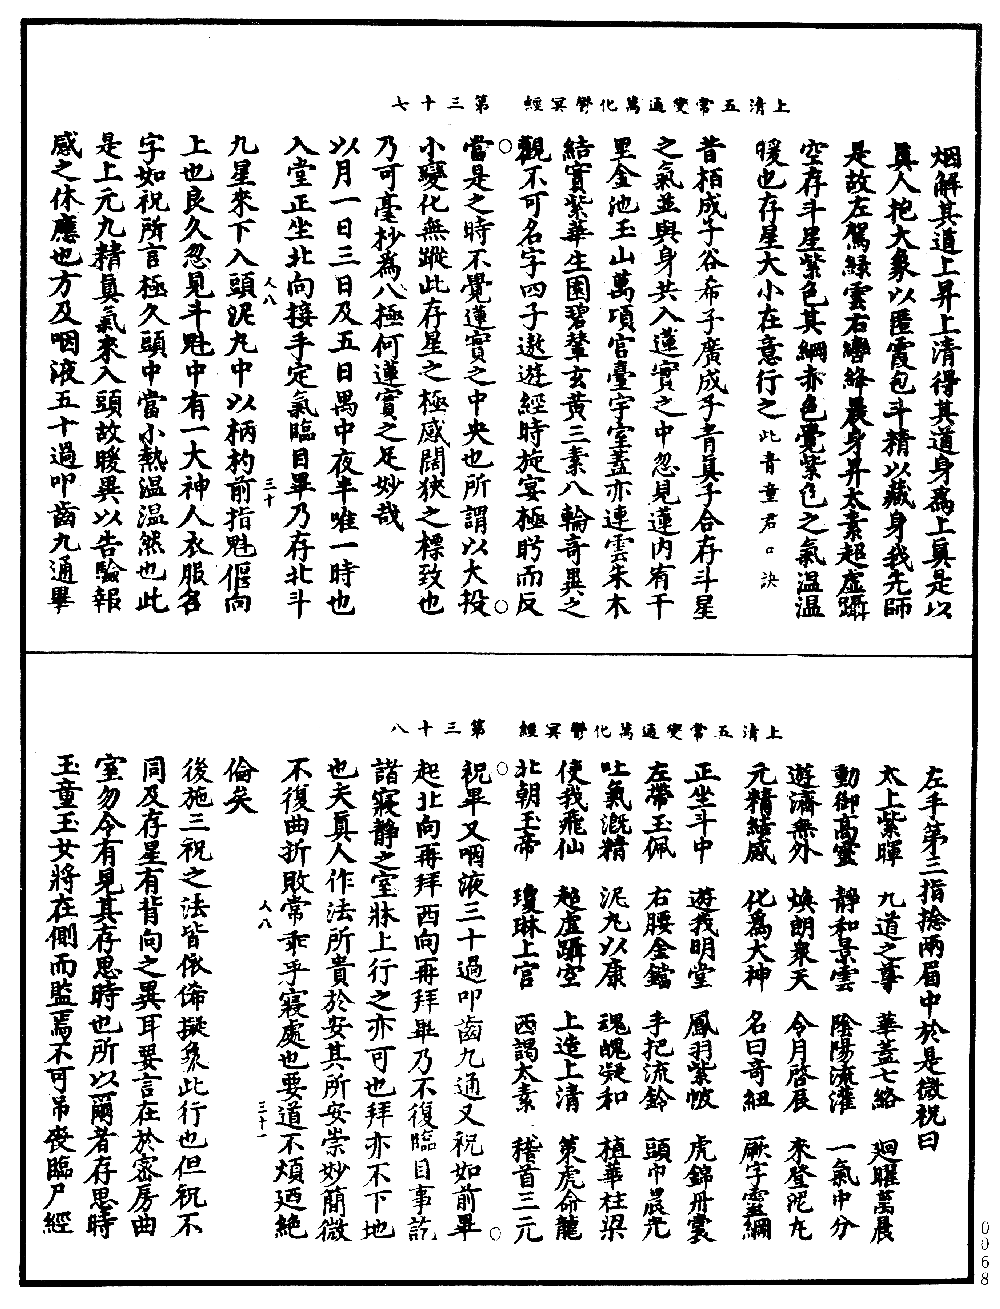 上清五常變通萬化鬱冥經 第三十七
烟解其道上昇上清得其道身爲上眞是以
眞人抱大象以匿霞包斗精以藏身我先師
是故左駕綠雲右轡絳晨身昇太素超虛躡
空存斗星紫色其綱赤色覺紫色之氣溫溫
暖也存星大小在意行之此青童君口訣
昔栢成子谷希子廣成子青眞子合存斗星
之氣並與身共入蓮實之中忽見蓮內有千
里金池玉山萬項官臺宇室蓋亦連雲朱木
結實紫華生園碧輦玄黃三素八輪奇異之
觀不可名字四子遨遊經時旋宴極眄而反
當是之時不覺蓮實之中央也所謂以大投
小變化無蹤此存星之極感闊狹之標致也
乃可毫抄爲八極何蓮實之足妙哉
以月一日三日及五日禺中夜半唯一時也
入堂正坐北向接手定氣臨目畢乃存北斗
九星來下入頭泥丸中以柄杓前指魁偃向
上也良久忽見斗魁中有一大神人衣服名
字如祝所言極久頭中當小熱溫溫然也此
是上元九精眞氣來入頭故暖異以告驗報
感之休應也方及咽液五十過叩齒九通畢
人八
三十
上清五常變通萬化鬱冥經 第三十八
左手第三指捻兩眉中於是微祝曰
太上紫暉 九道之尊 華蓋七絡 迴曜萬晨
動御高靈 靜和景雲 陰陽流灌 一氣中分
遊濟無外 煥朗衆天 令月啓辰 來登泥丸
元精結感 化爲大神 名曰奇紐 厥字靈綱
正坐斗中 遊我明堂 鳳羽紫帔 虎錦丹裳
左帶玉佩 右腰金鐺 手把流鈴 頭巾晨光
吐氣溉精 泥丸以康 魂魄凝和 植華柱梁
使我飛仙 超虛躡空 上造上清 策虎命龍
北朝玉帝 瓊琳上宮 西謁太素 稽首三元
祝畢又咽液三十過叩齒九通又祝如前畢
起北向再拜西向再拜畢乃不復臨目事訖
諸寢靜之室牀上行之亦可也拜亦不下地
也夫眞人作法所貴於安其所安崇妙簡微
不復曲折敗常乖乎寢處也要道不煩迺絕
倫矣
人八
三十一
後施三祝之法皆依倚擬象此行也但祝不
同及存星有背向之異耳要言在於密房曲
室勿令有見其存思時也所以爾者存思時
玉童玉女將在側而監焉不可弔喪臨尸經
0068